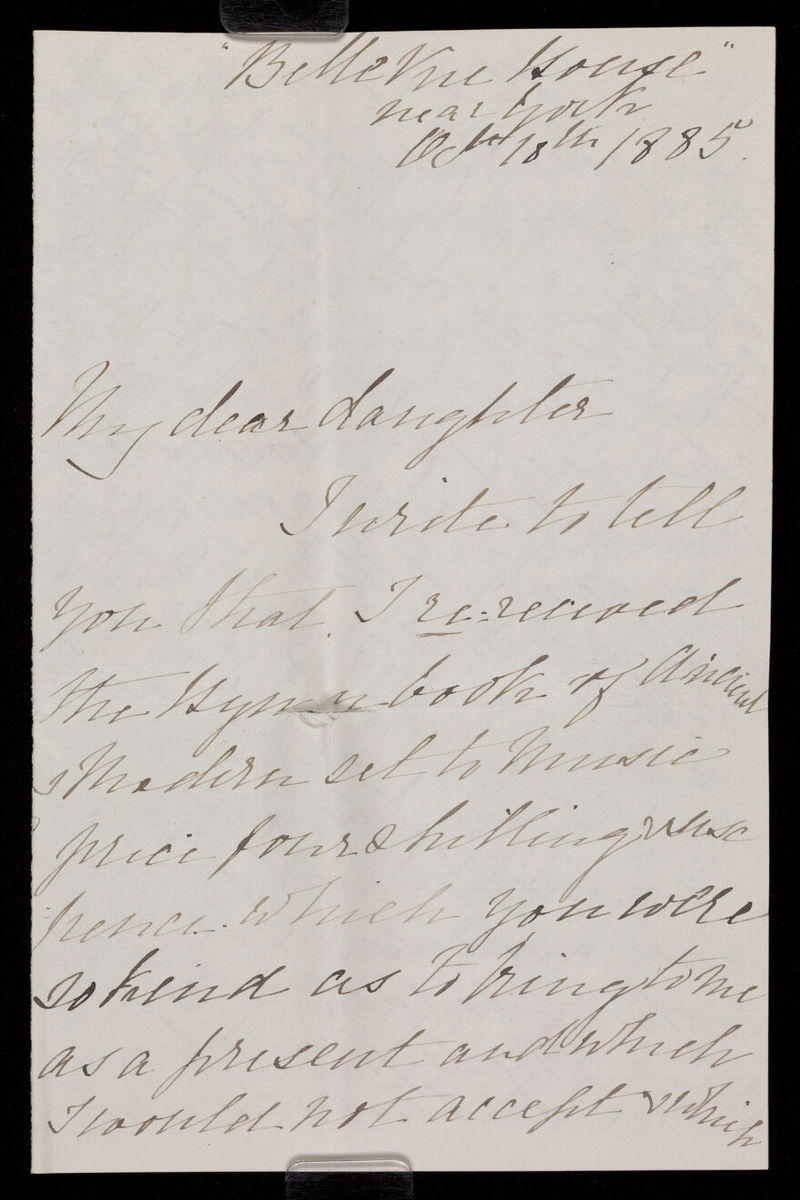 "Belle Vue House"
near York
Octr 18th 1885.
My dear daughter
I write to tell
you that I re-received
the Hymn book of Ancient
& Modern set to Music
price four shillings & six
pence which you were
so kind as to bring to me
as a present and which
I would not accept which